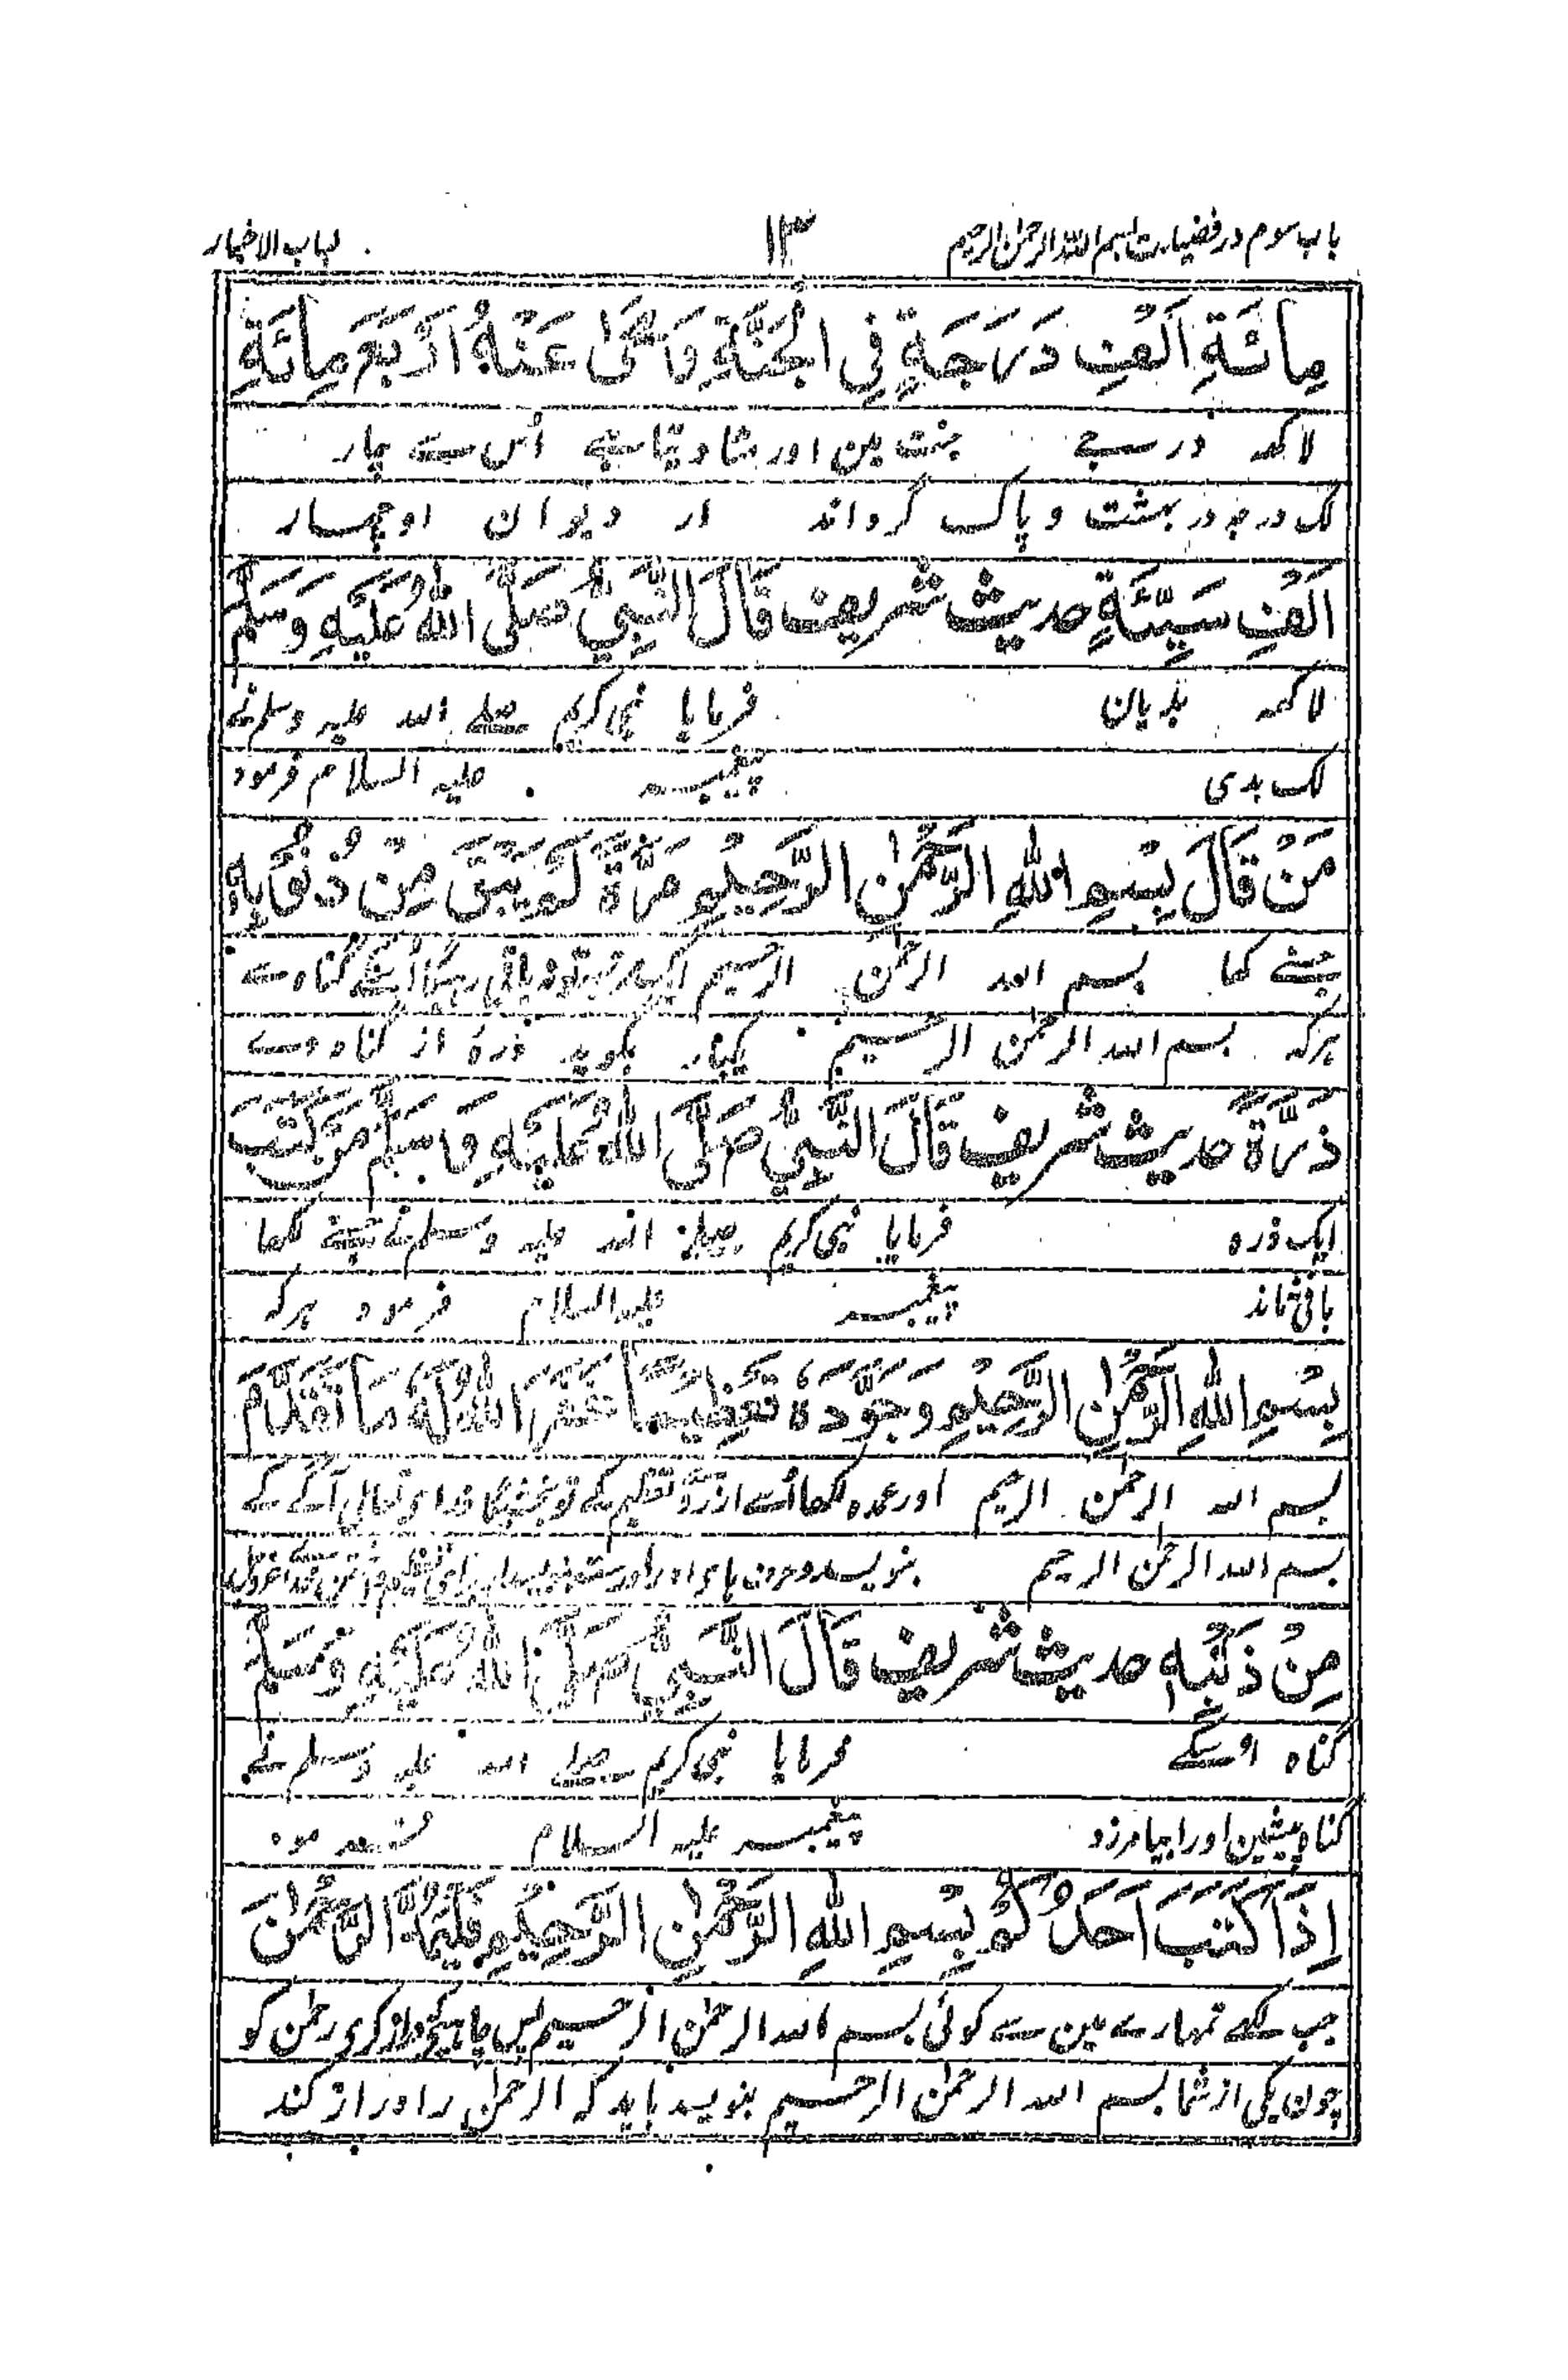 باب سوم در فضیلت بسم اللہ الرحمن الرحیم ۱۳ لباب الاخبار
مِائَةِ اَلْفِ دَرَجَةٍ فِی الْجَنَّةِ وَمَحٰی عَنْهُ اَرْبَعَ مِائَةِ
لاکھہ درجے جنت مین اور مٹا دیتا ہے اُس سے چار
لک درجہ در بہشت و پاک گرداند از دیوان او چہار
اَلْفِ سَیِّئَةٍ حدیث شریف قَالَ النَّبِیُّ صَلَّی اللّٰهُ عَلَیْهِ وَسَلَّمَ
لاکھہ بدیان فرمایا نبی کریم صلے اللہ علیہ وسلم نے
لک بدی پیغمبر علیہ السلام فرمود
مَنْ قَالَ بِسْمِ اللّٰهِ الرَّحْمٰنِ الرَّحِیْمِ مَرَّةً لَمْ یَبْقَ مِنْ ذُنُوْبِهٖ
جسنے کہا بسم اللہ الرحمن الرحیم ایکبار تو نہ باقی رہیگا اُسکے گناہ سے
ہرکہ بسم اللہ الرحمن الرحیم یکبار بگوید ذرۂ از گناہ وے
ذَرَّةً حدیث شریف قَالَ النَّبِیُّ صَلَّی اللّٰهُ عَلَیْهِ وَسَلَّمَ مَنْ كَتَبَ
ایک ذرہ فرمایا نبی کریم صلے اللہ علیہ وسلم نے جسنے لکھا
باقی نماند پیغمبر علیہ السلام فرمود ہرکہ
بِسْمِ اللّٰهِ الرَّحْمٰنِ الرَّحِیْمِ وَجَوَّدَهٗ تَعْظِیْمًا غَفَرَ اللّٰهُ لَهٗ مَا تَقَدَّمَ
بسم اللہ الرحمن الرحیم اور عمدہ لکھا اُسے از روے تعظیم کے تو بخشیگا خداے تعالی آگے کے
بسم اللہ الرحمن الرحیم بنویسد و حروف ہاے او را
مِنْ ذَنْبِهٖ حدیث شریف قَالَ النَّبِیُّ صَلَّی اللّٰهُ عَلَیْهِ وَسَلَّمَ
گناہ اوسکے فرمایا نبی کریم صلے اللہ علیہ وسلم نے
گناہ پیشین او را بیامرزد پیغمبر علیہ السلام فرمود
اِذَا كَتَبَ اَحَدُكُمْ بِسْمِ اللّٰهِ الرَّحْمٰنِ الرَّحِیْمِ فَلْیَمُدَّ الرَّحْمٰنَ
جب لکھے تمہارے مین سے کوئی بسم اللہ الرحمن الرحیم پس چاہیے کہ دراز کری رحمن کو
چون یکی از شما بسم اللہ الرحمن الرحیم بنویسد باید کہ الرحمن را دراز کند